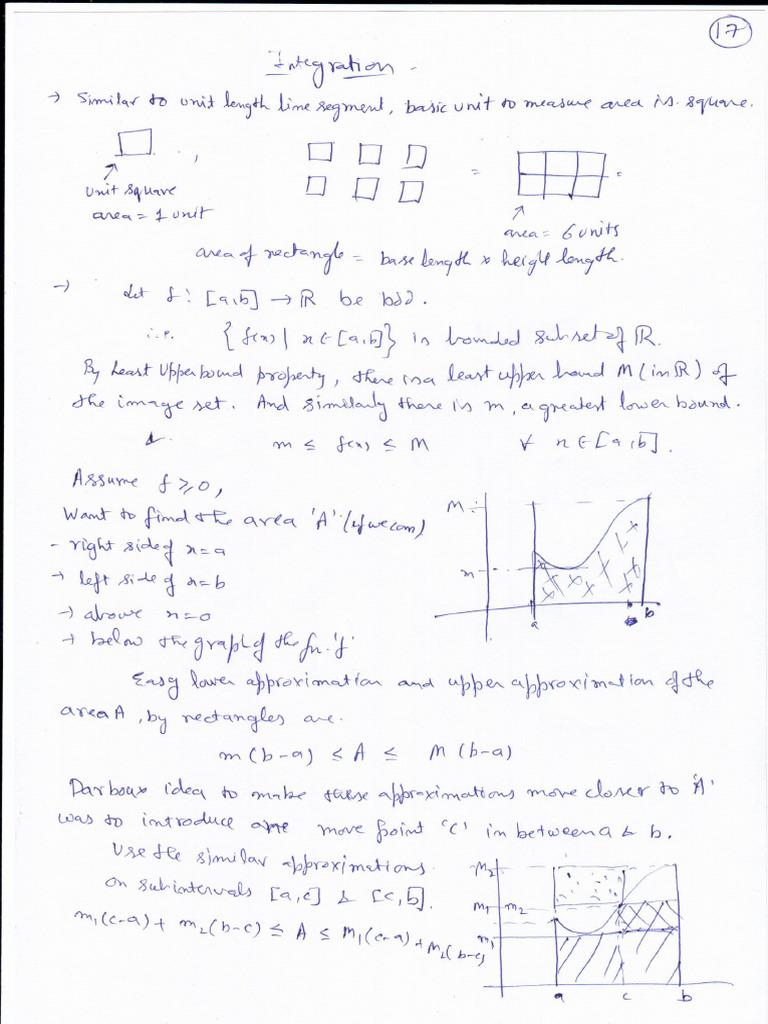 17
Integration -
→ Similar to unit length line segment, basic unit to measure area is square.
unit square
area = 1 unit
=
=
area = 6 units
area of rectangle = base length × height length.
→ Let f : [a,b] → ℝ be bdd.
i.e. {f(x) | x ∈ [a,b]} is bounded subset of ℝ.
By Least Upper bound property, there is a least upper bound M (in ℝ) of
the image set. And similarly there is m, a greatest lower bound.
& m ≤ f(x) ≤ M ∀ x ∈ [a,b].
Assume f ≥ 0,
Want to find the area 'A' (if we can)
- right side of x = a
→ left side of x = b
→ above x = 0
→ below the graph of the fn. 'f'
M
m
a
b
Easy lower approximation and upper approximation of the
area A, by rectangles are.
m (b-a) ≤ A ≤ M (b-a)
Darboux idea to make these approximations move closer to 'A'
was to introduce one more point 'c' in between a & b.
Use the similar approximations
on subintervals [a,c] & [c,b].
m₁(c-a) + m₂(b-c) ≤ A ≤ M₁(c-a) + M₂(b-c)
M₂
M₁ m₂
m₁
a c b